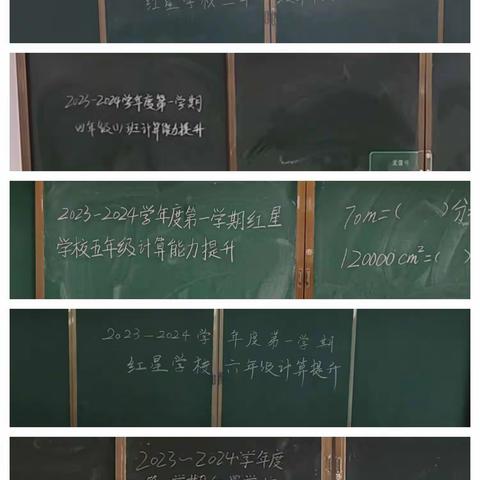 红星学校三年
2023-2024学年度第一学期
四年级(1)班计算能力提升
2023-2024学年度第一学期红星
学校五年级计算能力提升
70m=( )分
120000cm²=( )
2023-2024学年度第一学期
红星学校六年级计算提升
2023~2024学年度